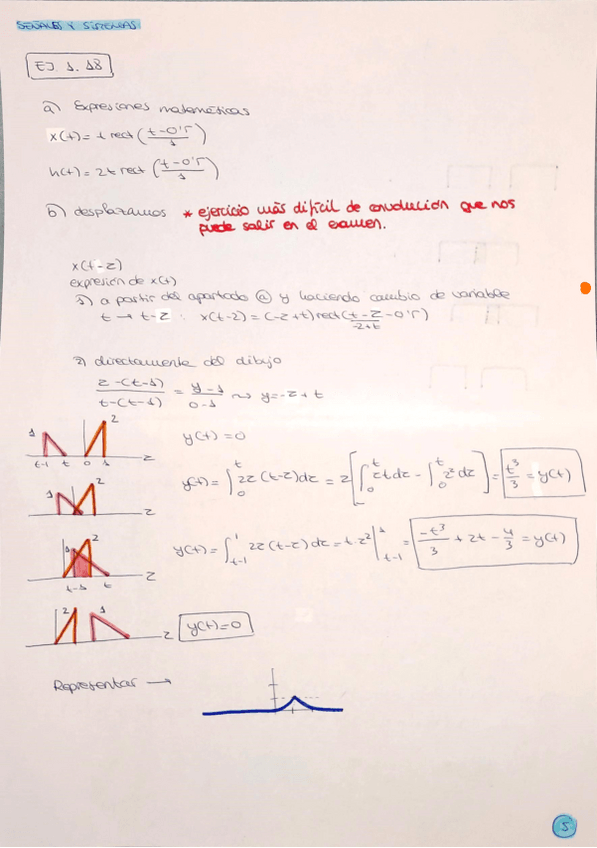 SEÑALES Y SISTEMAS
EJ. 1.18
a) Expresiones matemáticas
x(t) = t rect (t-0'5/1)
h(t) = 2t rect (t-0'5/1)
b) desplazamos * ejercicio más difícil de convolución que nos
puede salir en el examen.
x(t-z)
expresión de x(t)
1) a partir del apartado @ y haciendo cambio de variable
t → t-z : x(t-z) = (-z+t) rect (t-z-0'5/-z+t)
2) directamente del dibujo
z-(t-1)/t-(t-1) = y-1/0-1 ⇝ y=-z+t
1 2 t-1 t 0 1 z
y(t)=0
1 2 z
y(t)= ∫₀ᵗ 2z(t-z)dz = 2[∫₀ᵗ ztdz - ∫₀ᵗ z²dz] = t³/3 = y(t)
1 2 t-1 t z
y(t)= ∫ₜ₋₁¹ 2z(t-z)dz = t·z² |ₜ₋₁¹ = -t³/3 + 2t - 4/3 = y(t)
2 1 z
y(t)=0
Representar →
5